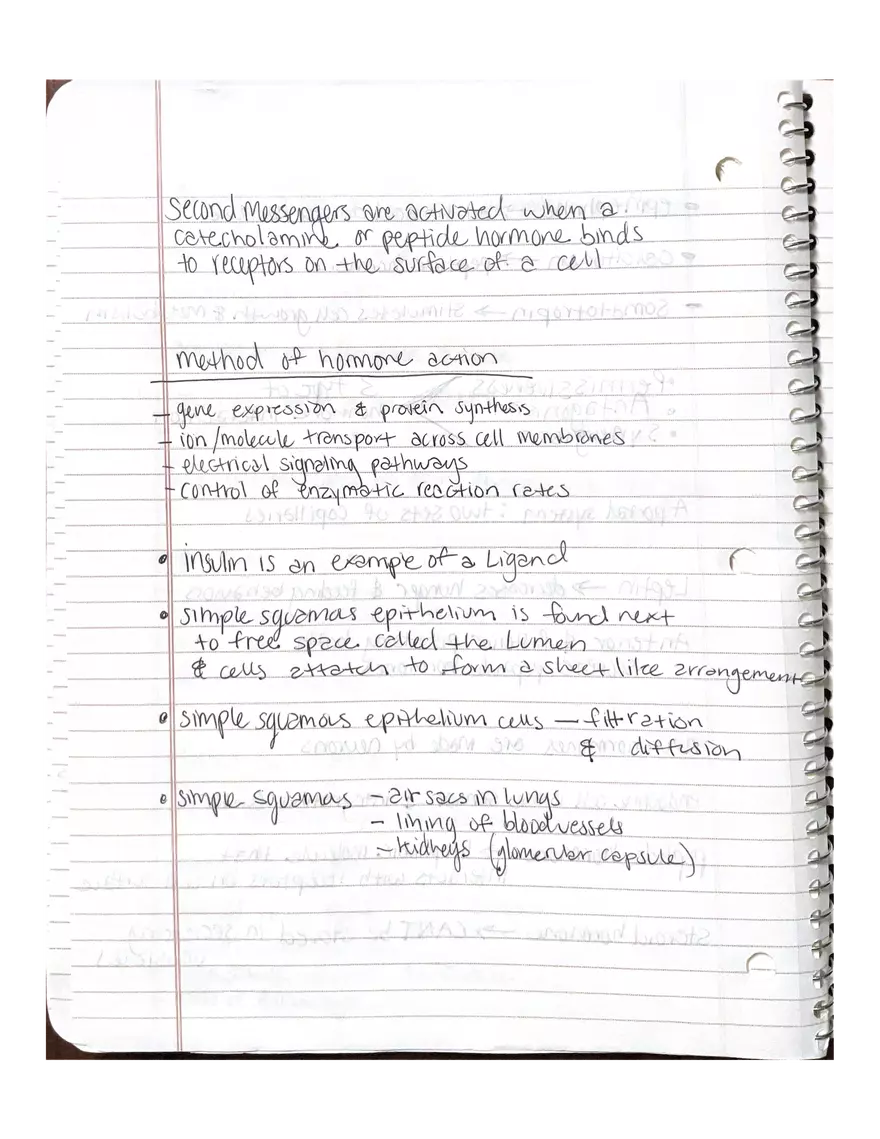 Second Messengers are activated when a
catecholamine or peptide hormone binds
to receptors on the surface of a cell
method of hormone action
- gene expression & protein synthesis
- ion/molecule transport across cell membranes
- electrical signaling pathways
- control of enzymatic reaction rates
• insulin is an example of a Ligand
• simple squamas epithelium is found next
to free space called the Lumen
& cells attatch to form a sheet like arrangement
• simple squamous epithelium cells — filtration
& diffusion
• simple squamas - air sacs in lungs
- lining of blood vessels
- kidneys (glomerular capsule)